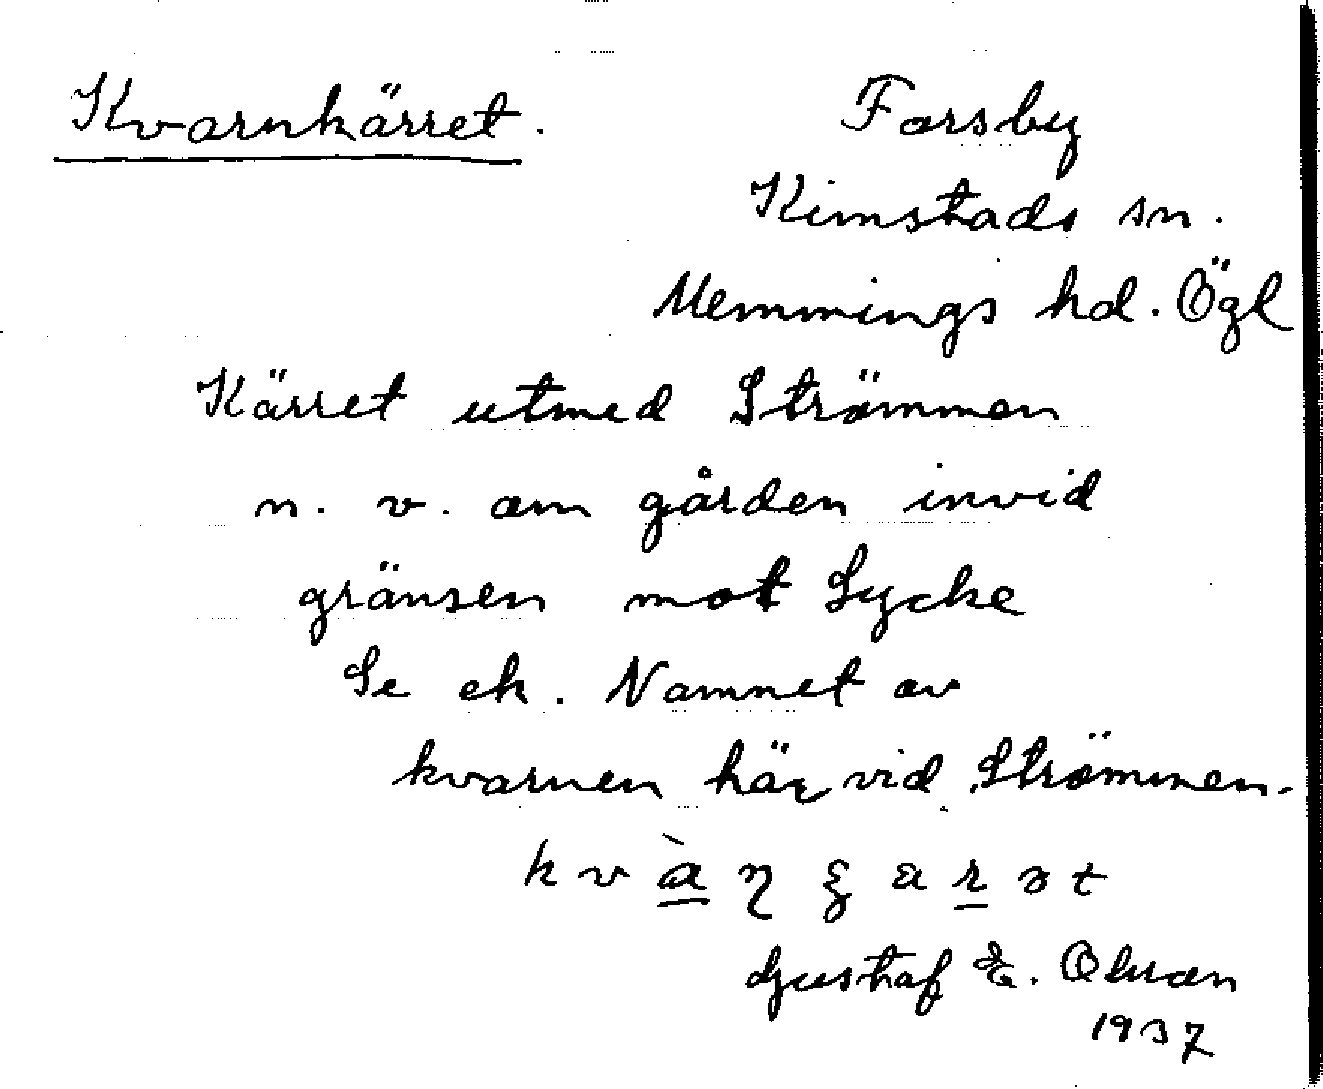 Kvarnkärret.
Forsby
Kimstads sn.
Memmings hd. Ögl
Kärret utmed Strömmen
n. v. om gården invid
gränsen mot Lycke
Se ek. Namnet av
kvarnen här vid Strömmen.
Gustaf E. Olsson
1937